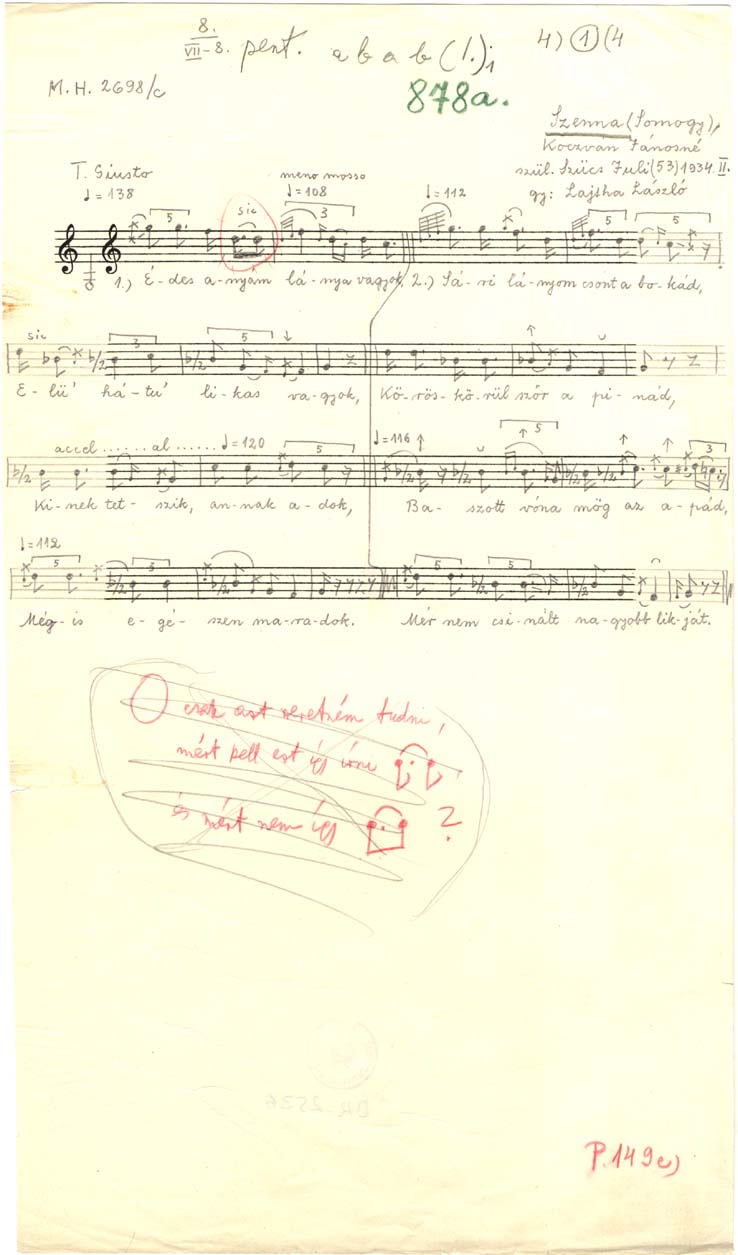 8.
VII-8. pent. a b a b (1.)1 4) 1 (4
M.H. 2698/c
878a.
Szenna (Somogy),
Koczván Jánosné
szül. Szücs Juli (53) 1934. II.
gy: Lajtha László
T. Giusto meno mosso
♩ = 138 ♩ = 108 ♩ = 112
5 sic 3 5 5
1.) É-des a-nyám lá-nya vagyok, 2.) Sá-ri lá-nyom csont a bo-kád,
sic 3 5
E-lü' há-tu' li-kas va-gyok, Kö-rös-kö-rül szőr a pi-nád,
accel ...... al ...... ♩ = 120 5 ♩ = 116 5 3
Ki-nek tet-szik, an-nak a-dok, Ba-szott vóna mög az a-pád,
♩ = 112
5 5 5 5
Még-is e-gé-szen ma-ra-dok. Mér nem csi-nált na-gyobb lik-ját.
O csak azt szeretném tudni,
mért kell ezt így írni
és mért nem így ?
BR. 2536
P. 149e)